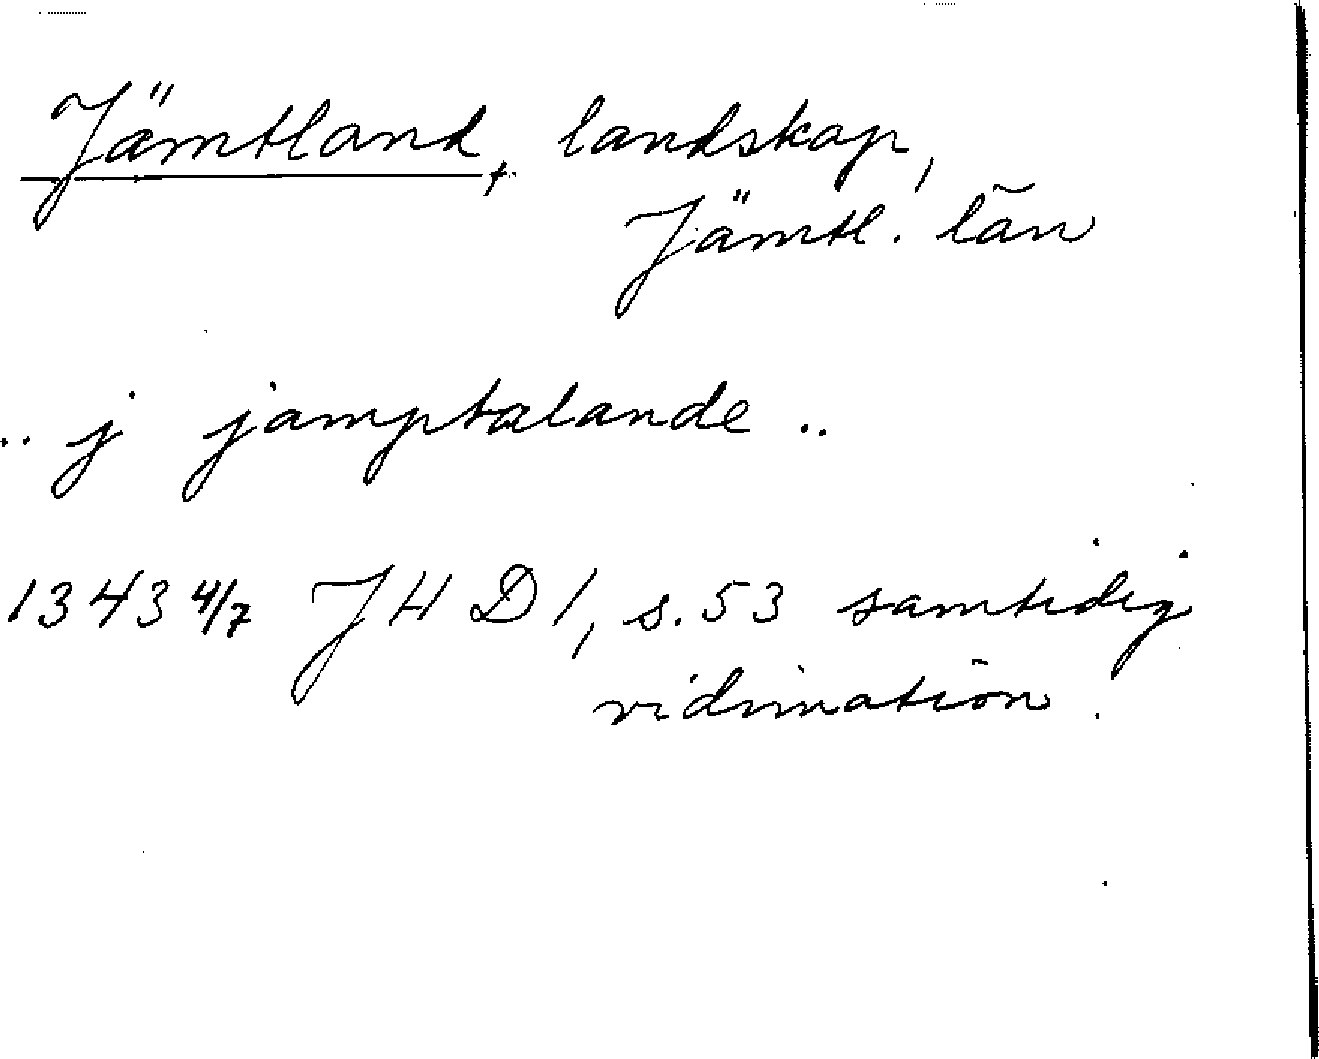 Jämtland, landskap,
Jämtl. län
.. j jamptalande ..
1343 4/7 JHD 1, s. 53 samtidig
vidimation.